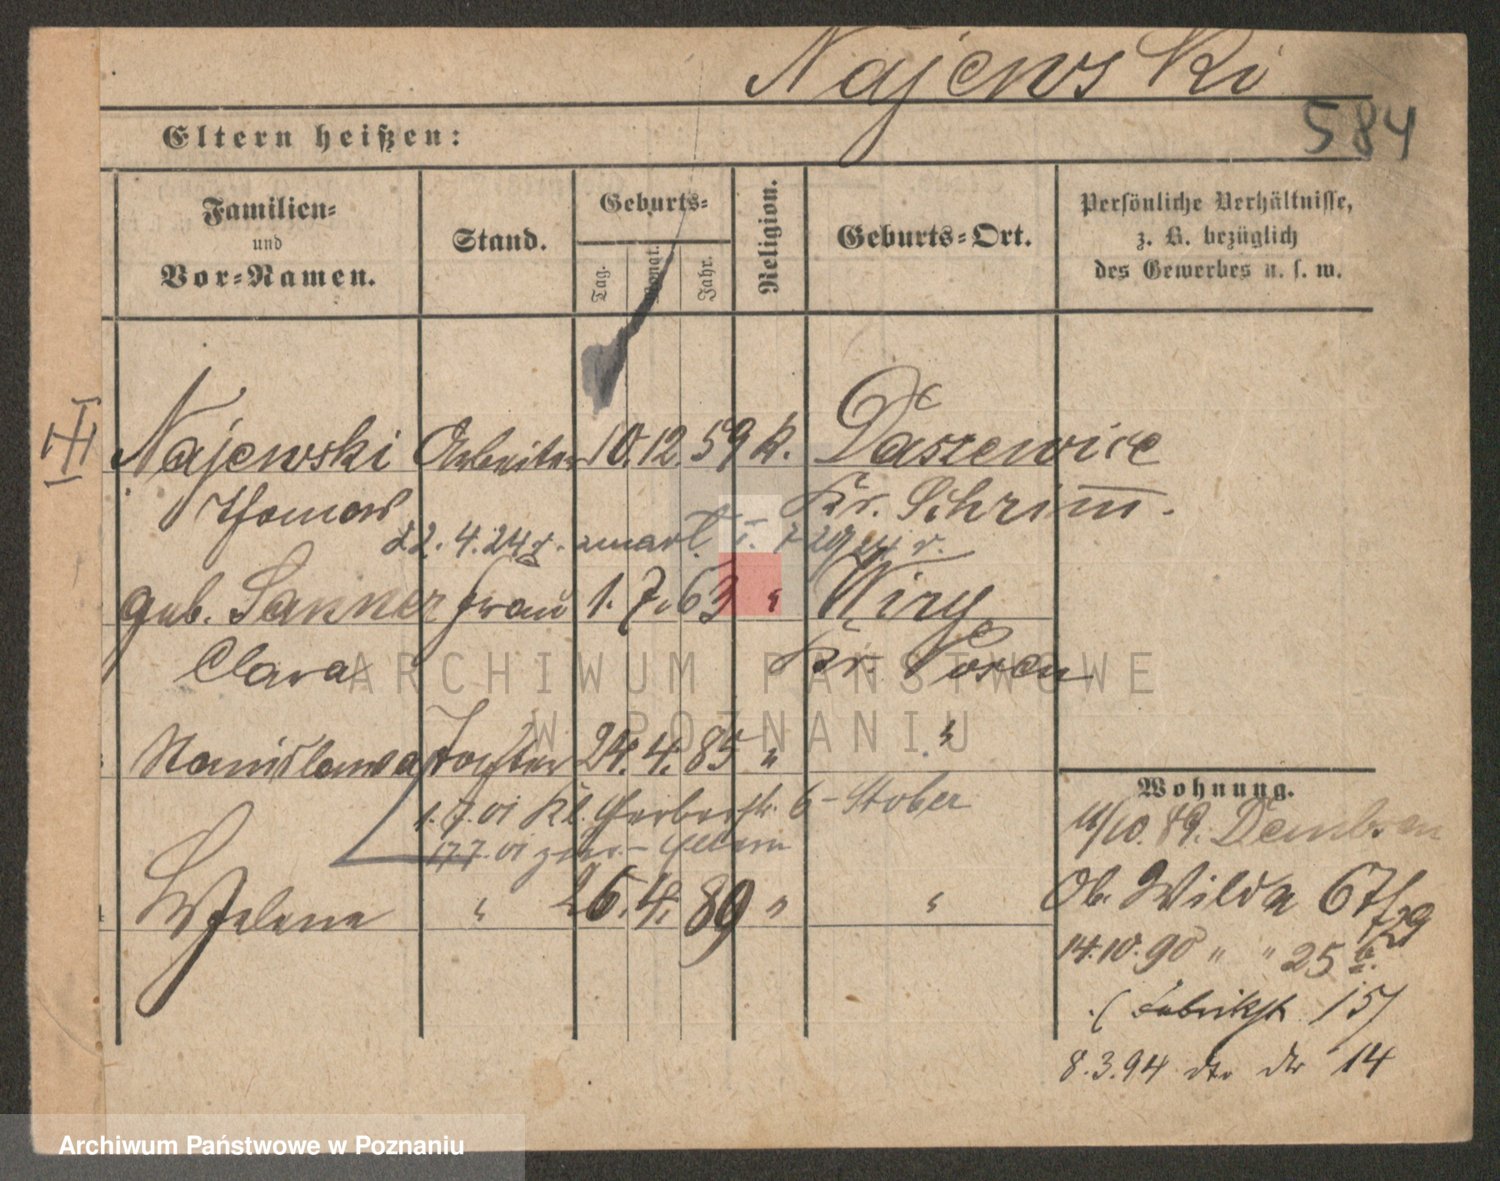 Najewski
584
Eltern heißen:
Familien-
und
Vor-Namen.
Stand.
Geburts-
Tag.
Monat.
Jahr.
Religion.
Geburts-Ort.
Persönliche Verhältnisse,
z. B. bezüglich
des Gewerbes u. s. w.
Najewski Arbeiter 10. 12. 59 K. Daszewice
Thomas Kr. Schrimm.
22.4.24 r. zmarł
geb. Sanner Frau 1. 7. 63 " Wiry
Clara Kr. Posen
Stanislawa Tochter 24. 4. 85 " "
1.7.01 Kl. Gerberstr. 6 - Stober
17.7.01 - Eltern
Helene " 26. 4. 89 " "
Wohnung.
11/10. 89. Dembsen
Ob. Wilda 67
14.10.90 " " 25
(Fabrikst 15)
8.3.94 dto 14
ARCHIWUM PAŃSTWOWE
W POZNANIU
Archiwum Państwowe w Poznaniu